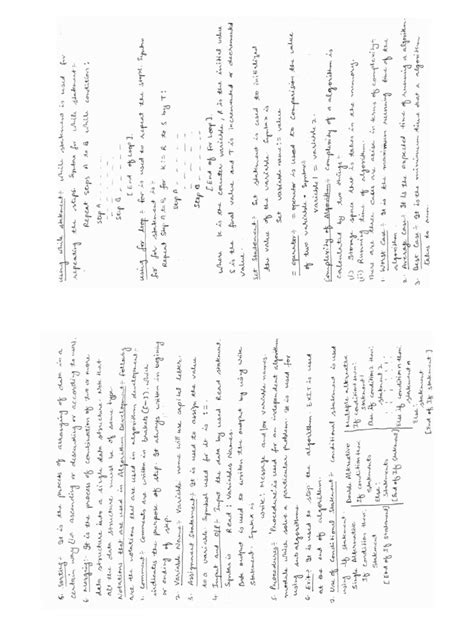 Sorting:- It is the process of arranging of data in a
certain way
6. merging:- It is the process of combination of two or more
data structures into a single data structure. Note that
all the data structure must be of same type.
Notations that are used in Algorithm Development:-
are the notations that are used in algorithm development:-
1. Comment:- Comments are written in brackets which
indicates the purpose of step. It always written in
or ending of step.
2. Variable Name:- Variable name will use capital letter.
3. Assignment Statement:- It is used to assign the value
to a variable Symbol used for it is :=
4. Input and O/P:- Input the data by used Read statement.
Syntax is Read: Variables Names.
Data output is used to written the output by using write
statement. Syntax is
write: message and/or variable names.
5. Procedures:- 'Procedure' is used for an independent algorithm
module which solve a particular problem. It is used for
using sub algorithm.
6. Exit:- It is used to stop the algorithm is used
at the end of algorithm.
7. Use of Conditional Statement:- Conditional statement is used
using If statement
Single Alternative
If condition then
Statement
[End of If statement]
Double Alternative
If condition then
statements
Else:
Statements
[End of If statement]
Multiple alternative
If condition then
statement 1
Else If condition then
statement 2
Else If condition then
statement n
Else statement
[End of If statement]
Using while statement:- while statement is used for
repeating the steps. Syntax for while statement:-
Repeat Steps A to B while condition:
Step A
Step B
[End of loop]
Using for loop:- for is used to repeat the steps. Syntax
for for statement is:-
Repeat Step A to B for K := R to S by T:
Step A
Step B
[End of for loop]
where K is the counter variable, R is the initial value
S is the final value and T is incremented or decremented
value.
Set Statement:- Set statement is used to initialized
the value of the variable. Syntax is
Set variable name := value
= operator:- = operator is used to comparison the value
of two variable. Syntax:-
variable 1 = variable 2.
Complexity of Algorithm:- Complexity of a algorithm is
calculated by two things:-
(i) Storage space that is taken in the memory.
(ii) Running time of algorithm
There are three cases are arise in terms of complexity:-
1. Worse Case:- It is the maximum running time of the
algorithm
2. Average Case:- It is the expected time of running a algorithm.
3. Best Case:- It is the minimum time that a algorithm
takes to run.